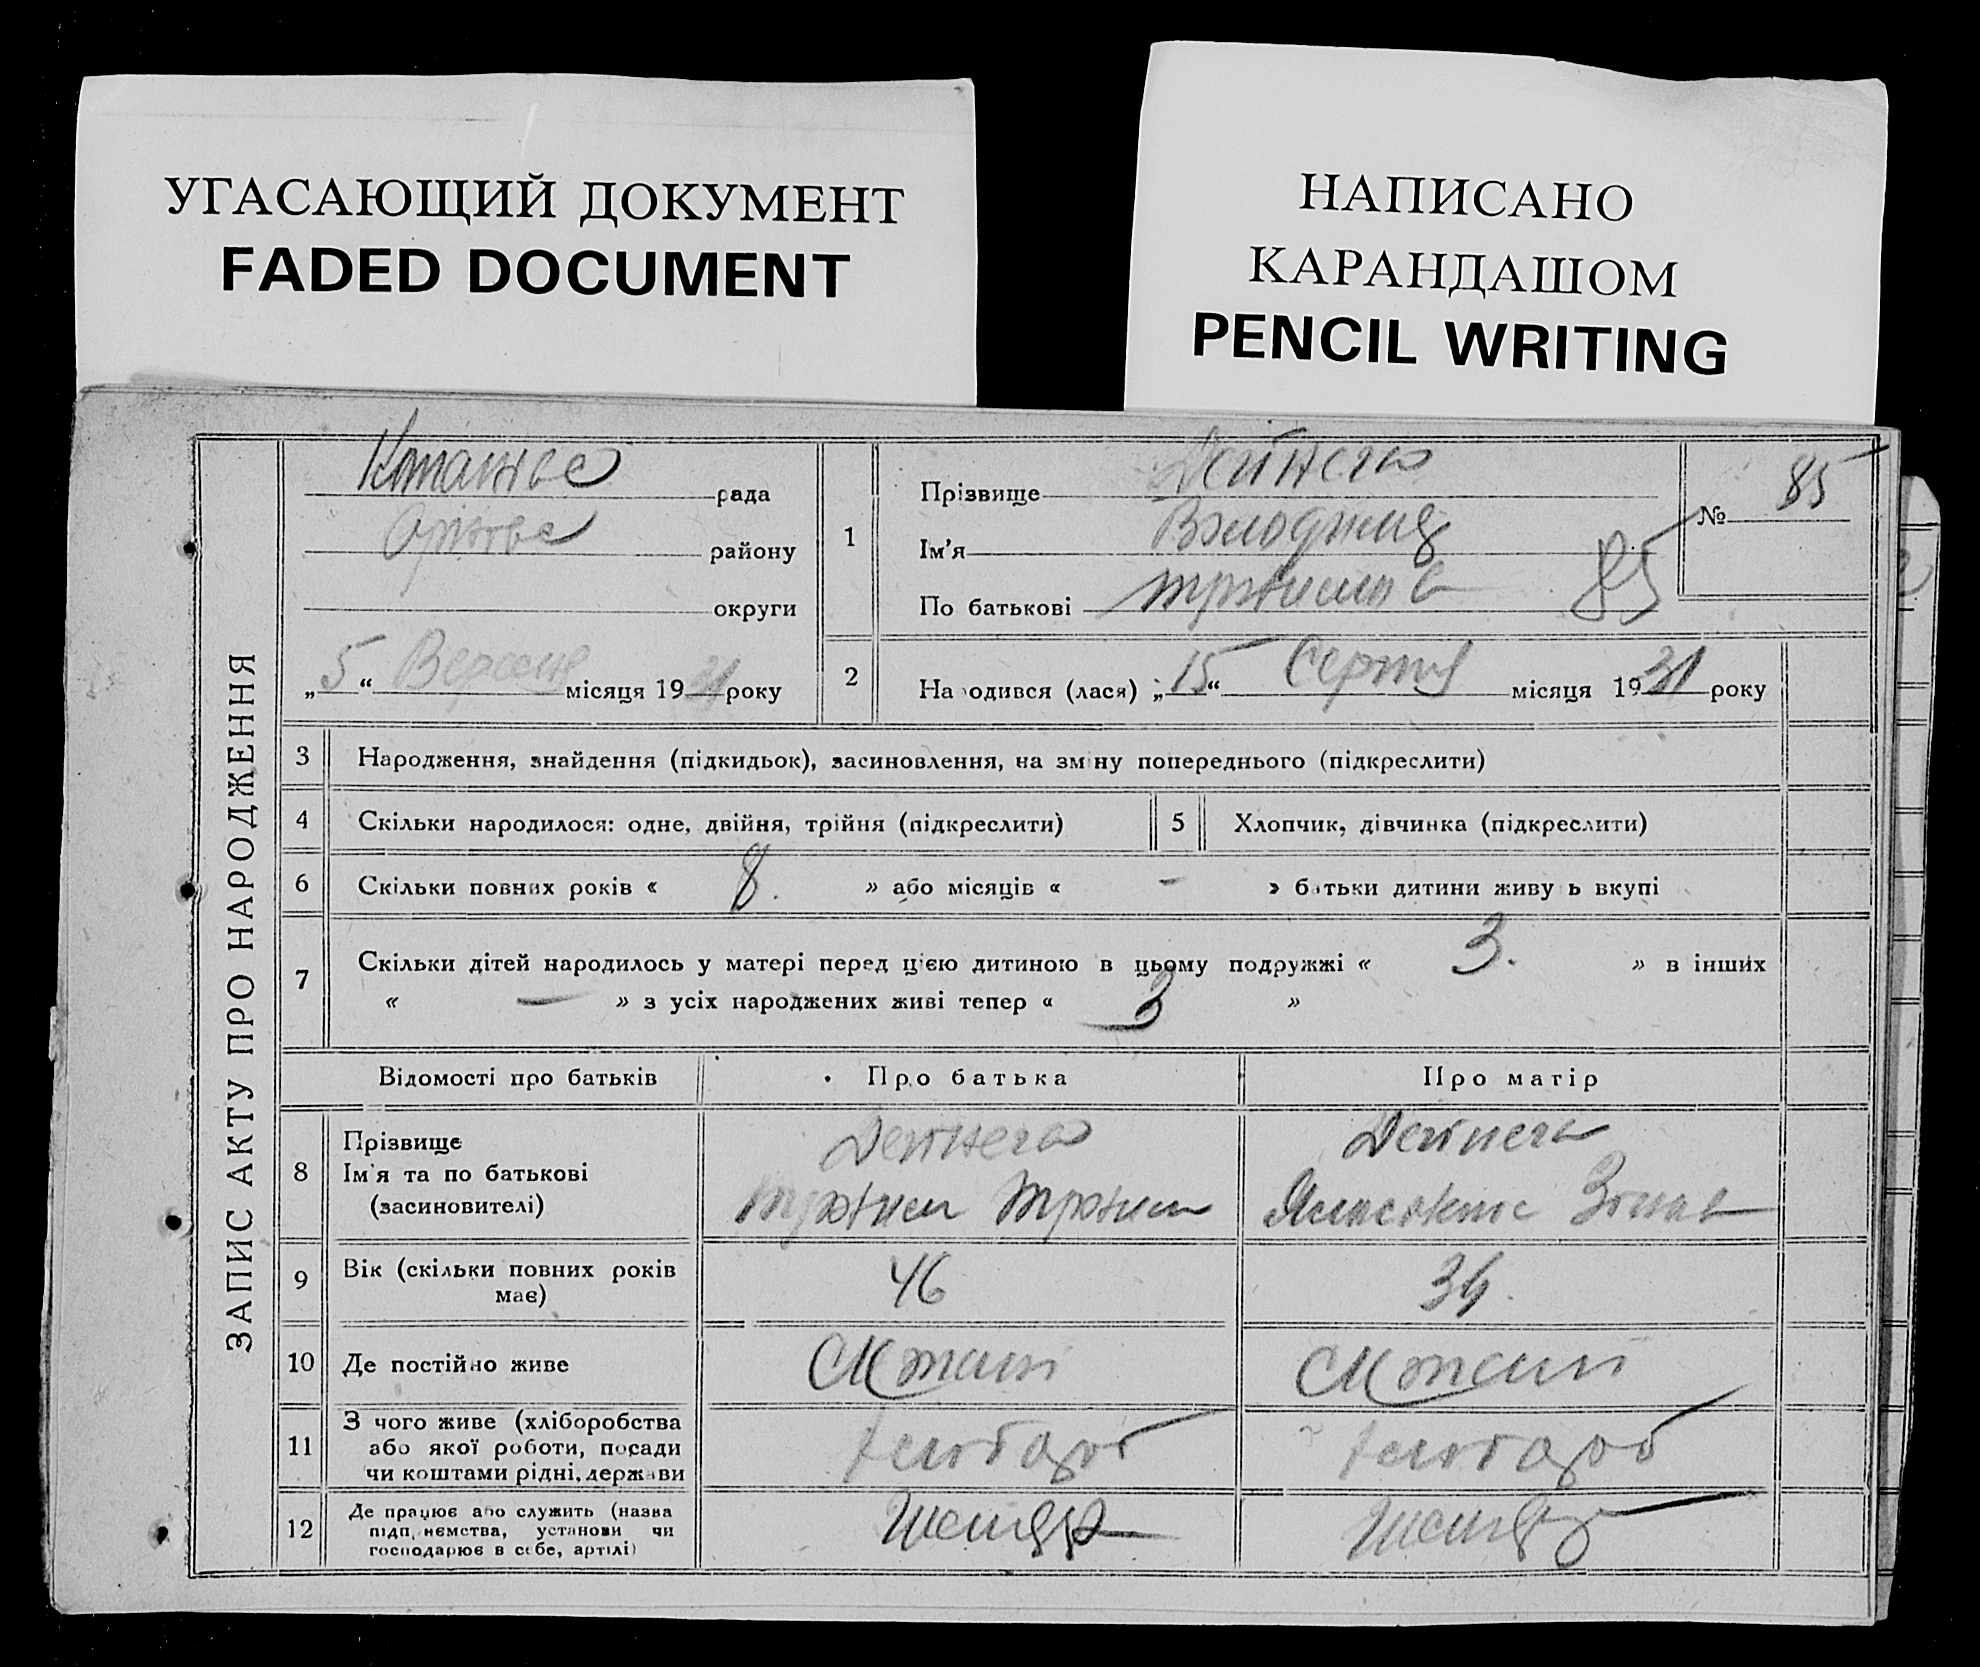 УГАСАЮЩИЙ ДОКУМЕНТ
FADED DOCUMENT
НАПИСАНО
КАРАНДАШОМ
PENCIL WRITING
ЗАПИС АКТУ ПРО НАРОДЖЕННЯ
рада
району
округи
„5“ Вересня місяця 1931 року
1
Прізвище Дейнега
Ім'я
По батькові
85
№ 85
2
Народився (лася) „15“ Серпня місяця 1931 року
3 Народження, знайдення (підкидьок), засиновлення, на зміну попереднього (підкреслити)
4 Скільки народилося: одне, двійня, трійня (підкреслити)
5 Хлопчик, дівчинка (підкреслити)
6 Скільки повних років « 8. » або місяців « - » батьки дитини живуть вкупі
7 Скільки дітей народилось у матері перед цією дитиною в цьому подружжі « 3. » в інших
« — » з усіх народжених живі тепер « 3 »
Відомості про батьків
Про батька
Про матір
8
Прізвище
Ім'я та по батькові
(засиновителі)
Дейнега
Дейнега
9
Вік (скільки повних років
має)
46
34.
10 Де постійно живе
11
З чого живе (хліборобства
або якої роботи, посади
чи коштами рідні, держави
хлібороб
хлібороб
12
Де працює або служить (назва
підприємства, установи чи
господарює в себе, артілі)